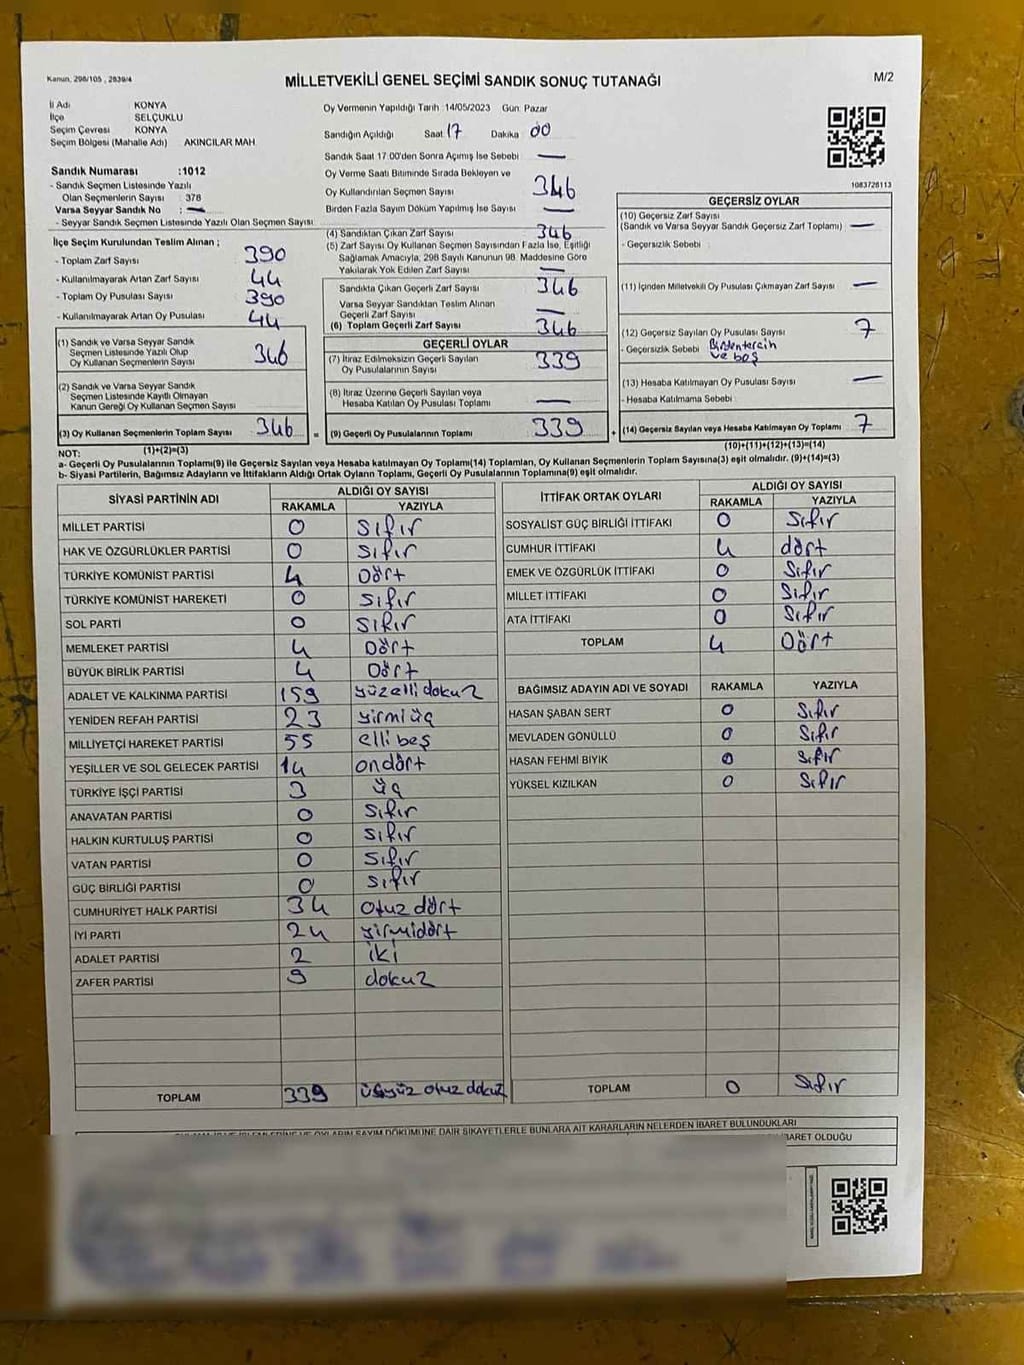 Kanun, 298/105 , 2839/4
MİLLETVEKİLİ GENEL SEÇİMİ SANDIK SONUÇ TUTANAĞI
M/2
İl Adı KONYA
İlçe SELÇUKLU
Seçim Çevresi KONYA
Seçim Bölgesi (Mahalle Adı) AKINCILAR MAH
Sandık Numarası :1012
- Sandık Seçmen Listesinde Yazılı
Olan Seçmenlerin Sayısı : 378
Varsa Seyyar Sandık No : —
- Seyyar Sandık Seçmen Listesinde Yazılı Olan Seçmen Sayısı
Oy Vermenin Yapıldığı Tarih :14/05/2023 Gün: Pazar
Sandığın Açıldığı Saat 17 Dakika 00
Sandık Saat 17:00'den Sonra Açımış İse Sebebi —
Oy Verme Saati Bitiminde Sırada Bekleyen ve
Oy Kullandırılan Seçmen Sayısı 346
Birden Fazla Sayım Döküm Yapılmış İse Sayısı —
1083726113
İlçe Seçim Kurulundan Teslim Alınan ;
- Toplam Zarf Sayısı 390
- Kullanılmayarak Artan Zarf Sayısı 44
- Toplam Oy Pusulası Sayısı 390
- Kullanılmayarak Artan Oy Pusulası 44
(1) Sandık ve Varsa Seyyar Sandık
Seçmen Listesinde Yazılı Olup
Oy Kullanan Seçmenlerin Sayısı 346
(2) Sandık ve Varsa Seyyar Sandık
Seçmen Listesinde Kayıtlı Olmayan
Kanun Gereği Oy Kullanan Seçmen Sayısı
(3) Oy Kullanan Seçmenlerin Toplam Sayısı 346
(1)+(2)=(3)
(4) Sandıktan Çıkan Zarf Sayısı 346
(5) Zarf Sayısı Oy Kullanan Seçmen Sayısından Fazla İse, Eşitliği
Sağlamak Amacıyla, 298 Sayılı Kanunun 98. Maddesine Göre
Yakılarak Yok Edilen Zarf Sayısı —
Sandıkta Çıkan Geçerli Zarf Sayısı 346
Varsa Seyyar Sandıktan Teslim Alınan
Geçerli Zarf Sayısı —
(6) Toplam Geçerli Zarf Sayısı 346
GEÇERLİ OYLAR
(7) İtiraz Edilmeksizin Geçerli Sayılan
Oy Pusulalarının Sayısı 339
(8) İtiraz Üzerine Geçerli Sayılan veya
Hesaba Katılan Oy Pusulası Toplamı —
= (9) Geçerli Oy Pusulalarının Toplamı 339
GEÇERSİZ OYLAR
(10) Geçersiz Zarf Sayısı
(Sandık ve Varsa Seyyar Sandık Geçersiz Zarf Toplamı) —
- Geçersizlik Sebebi :
(11) İçinden Milletvekili Oy Pusulası Çıkmayan Zarf Sayısı —
(12) Geçersiz Sayılan Oy Pusulası Sayısı 7
- Geçersizlik Sebebi Birdentercih
ve boş
(13) Hesaba Katılmayan Oy Pusulası Sayısı —
- Hesaba Katılmama Sebebi :
+ (14) Geçersiz Sayılan veya Hesaba Katılmayan Oy Toplamı 7
(10)+(11)+(12)+(13)=(14)
NOT:
a- Geçerli Oy Pusulalarının Toplamı(9) ile Geçersiz Sayılan veya Hesaba katılmayan Oy Toplamı(14) Toplamları, Oy Kullanan Seçmenlerin Toplam Sayısına(3) eşit olmalıdır. (9)+(14)=(3)
b- Siyasi Partilerin, Bağımsız Adayların ve İttifakların Aldığı Ortak Oyların Toplamı, Geçerli Oy Pusulalarının Toplamına(9) eşit olmalıdır.
SİYASİ PARTİNİN ADI ALDIĞI OY SAYISI
RAKAMLA YAZIYLA
MİLLET PARTİSİ 0 Sıfır
HAK VE ÖZGÜRLÜKLER PARTİSİ 0 Sıfır
TÜRKİYE KOMÜNİST PARTİSİ 4 Dört
TÜRKİYE KOMÜNİST HAREKETİ 0 Sıfır
SOL PARTİ 0 Sıfır
MEMLEKET PARTİSİ 4 Dört
BÜYÜK BİRLİK PARTİSİ 4 Dört
ADALET VE KALKINMA PARTİSİ 159 yüzelli dokuz
YENİDEN REFAH PARTİSİ 23 yirmi üç
MİLLİYETÇİ HAREKET PARTİSİ 55 elli beş
YEŞİLLER VE SOL GELECEK PARTİSİ 14 ondört
TÜRKİYE İŞÇİ PARTİSİ 3 üç
ANAVATAN PARTİSİ 0 Sıfır
HALKIN KURTULUŞ PARTİSİ 0 Sıfır
VATAN PARTİSİ 0 Sıfır
GÜÇ BİRLİĞİ PARTİSİ 0 Sıfır
CUMHURİYET HALK PARTİSİ 34 otuz dört
İYİ PARTİ 24 yirmidört
ADALET PARTİSİ 2 iki
ZAFER PARTİSİ 9 dokuz
TOPLAM 339 üçyüz otuz dokuz
İTTİFAK ORTAK OYLARI ALDIĞI OY SAYISI
RAKAMLA YAZIYLA
SOSYALİST GÜÇ BİRLİĞİ İTTİFAKI 0 Sıfır
CUMHUR İTTİFAKI 4 dört
EMEK VE ÖZGÜRLÜK İTTİFAKI 0 Sıfır
MİLLET İTTİFAKI 0 Sıfır
ATA İTTİFAKI 0 Sıfır
TOPLAM 4 Dört
BAĞIMSIZ ADAYIN ADI VE SOYADI RAKAMLA YAZIYLA
HASAN ŞABAN SERT 0 Sıfır
MEVLADEN GÖNÜLLÜ 0 Sıfır
HASAN FEHMİ BIYIK 0 Sıfır
YÜKSEL KIZILKAN 0 Sıfır
TOPLAM 0 Sıfır
OYLARIN SAYIM DÖKÜMÜNE DAİR ŞİKAYETLERLE BUNLARA AİT KARARLARIN NELERDEN İBARET BULUNDUKLARI
İBARET OLDUĞU